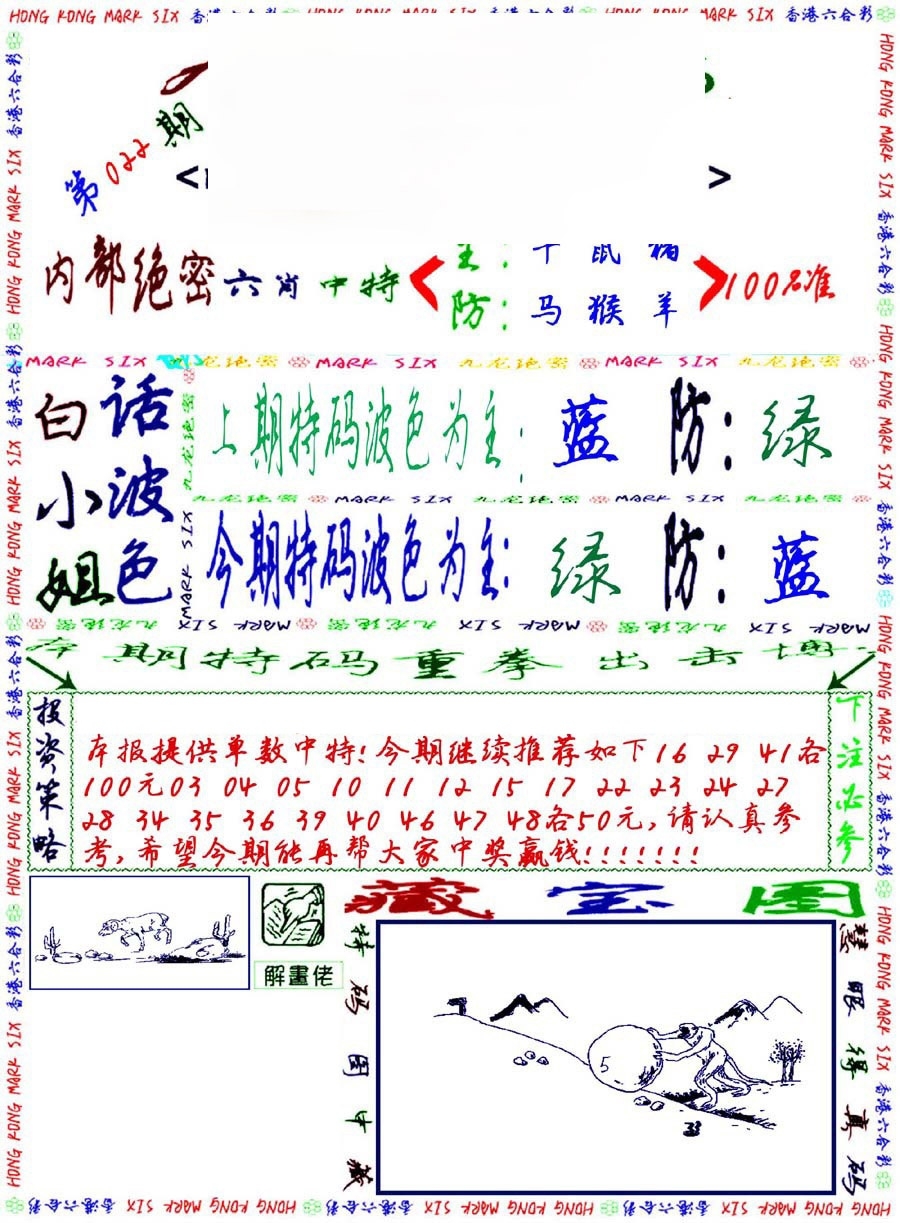 HONG KONG MARK SIX 香港六合彩
MARK SIX 香港六合彩
第022期
< >
内部绝密 六肖 中特
防: 马 猴 羊
100%准
MARK SIX 九龙绝密 MARK SIX 九龙绝密 MARK SIX 九龙绝密
白话小波姐色
上期特码波色为主: 蓝 防: 绿
九龙绝密 MARK SIX 九龙绝密 MARK SIX 九龙绝密
今期特码波色为主: 绿 防: 蓝
MARK SIX 九龙绝密 MARK SIX 九龙绝密 MARK SIX 九龙绝密
期特码重拳出击
投资策略
本报提供单数中特!今期继续推荐如下16 29 41各
100元03 04 05 10 11 12 15 17 22 23 24 27
28 34 35 36 39 40 46 47 48各50元,请认真参
考,希望今期能再帮大家中奖赢钱!!!!!!!
下注必参
解畫佬
藏宝图
特码图中藏
5
慧眼得真码
HONG KONG MARK SIX 香港六合彩